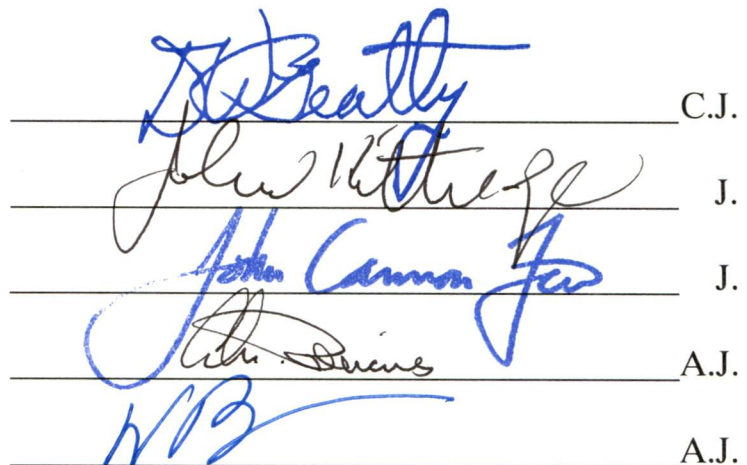 D W Beatty C.J.
John Kittredge J.
John Cannon Few J.
A.J.
A.J.